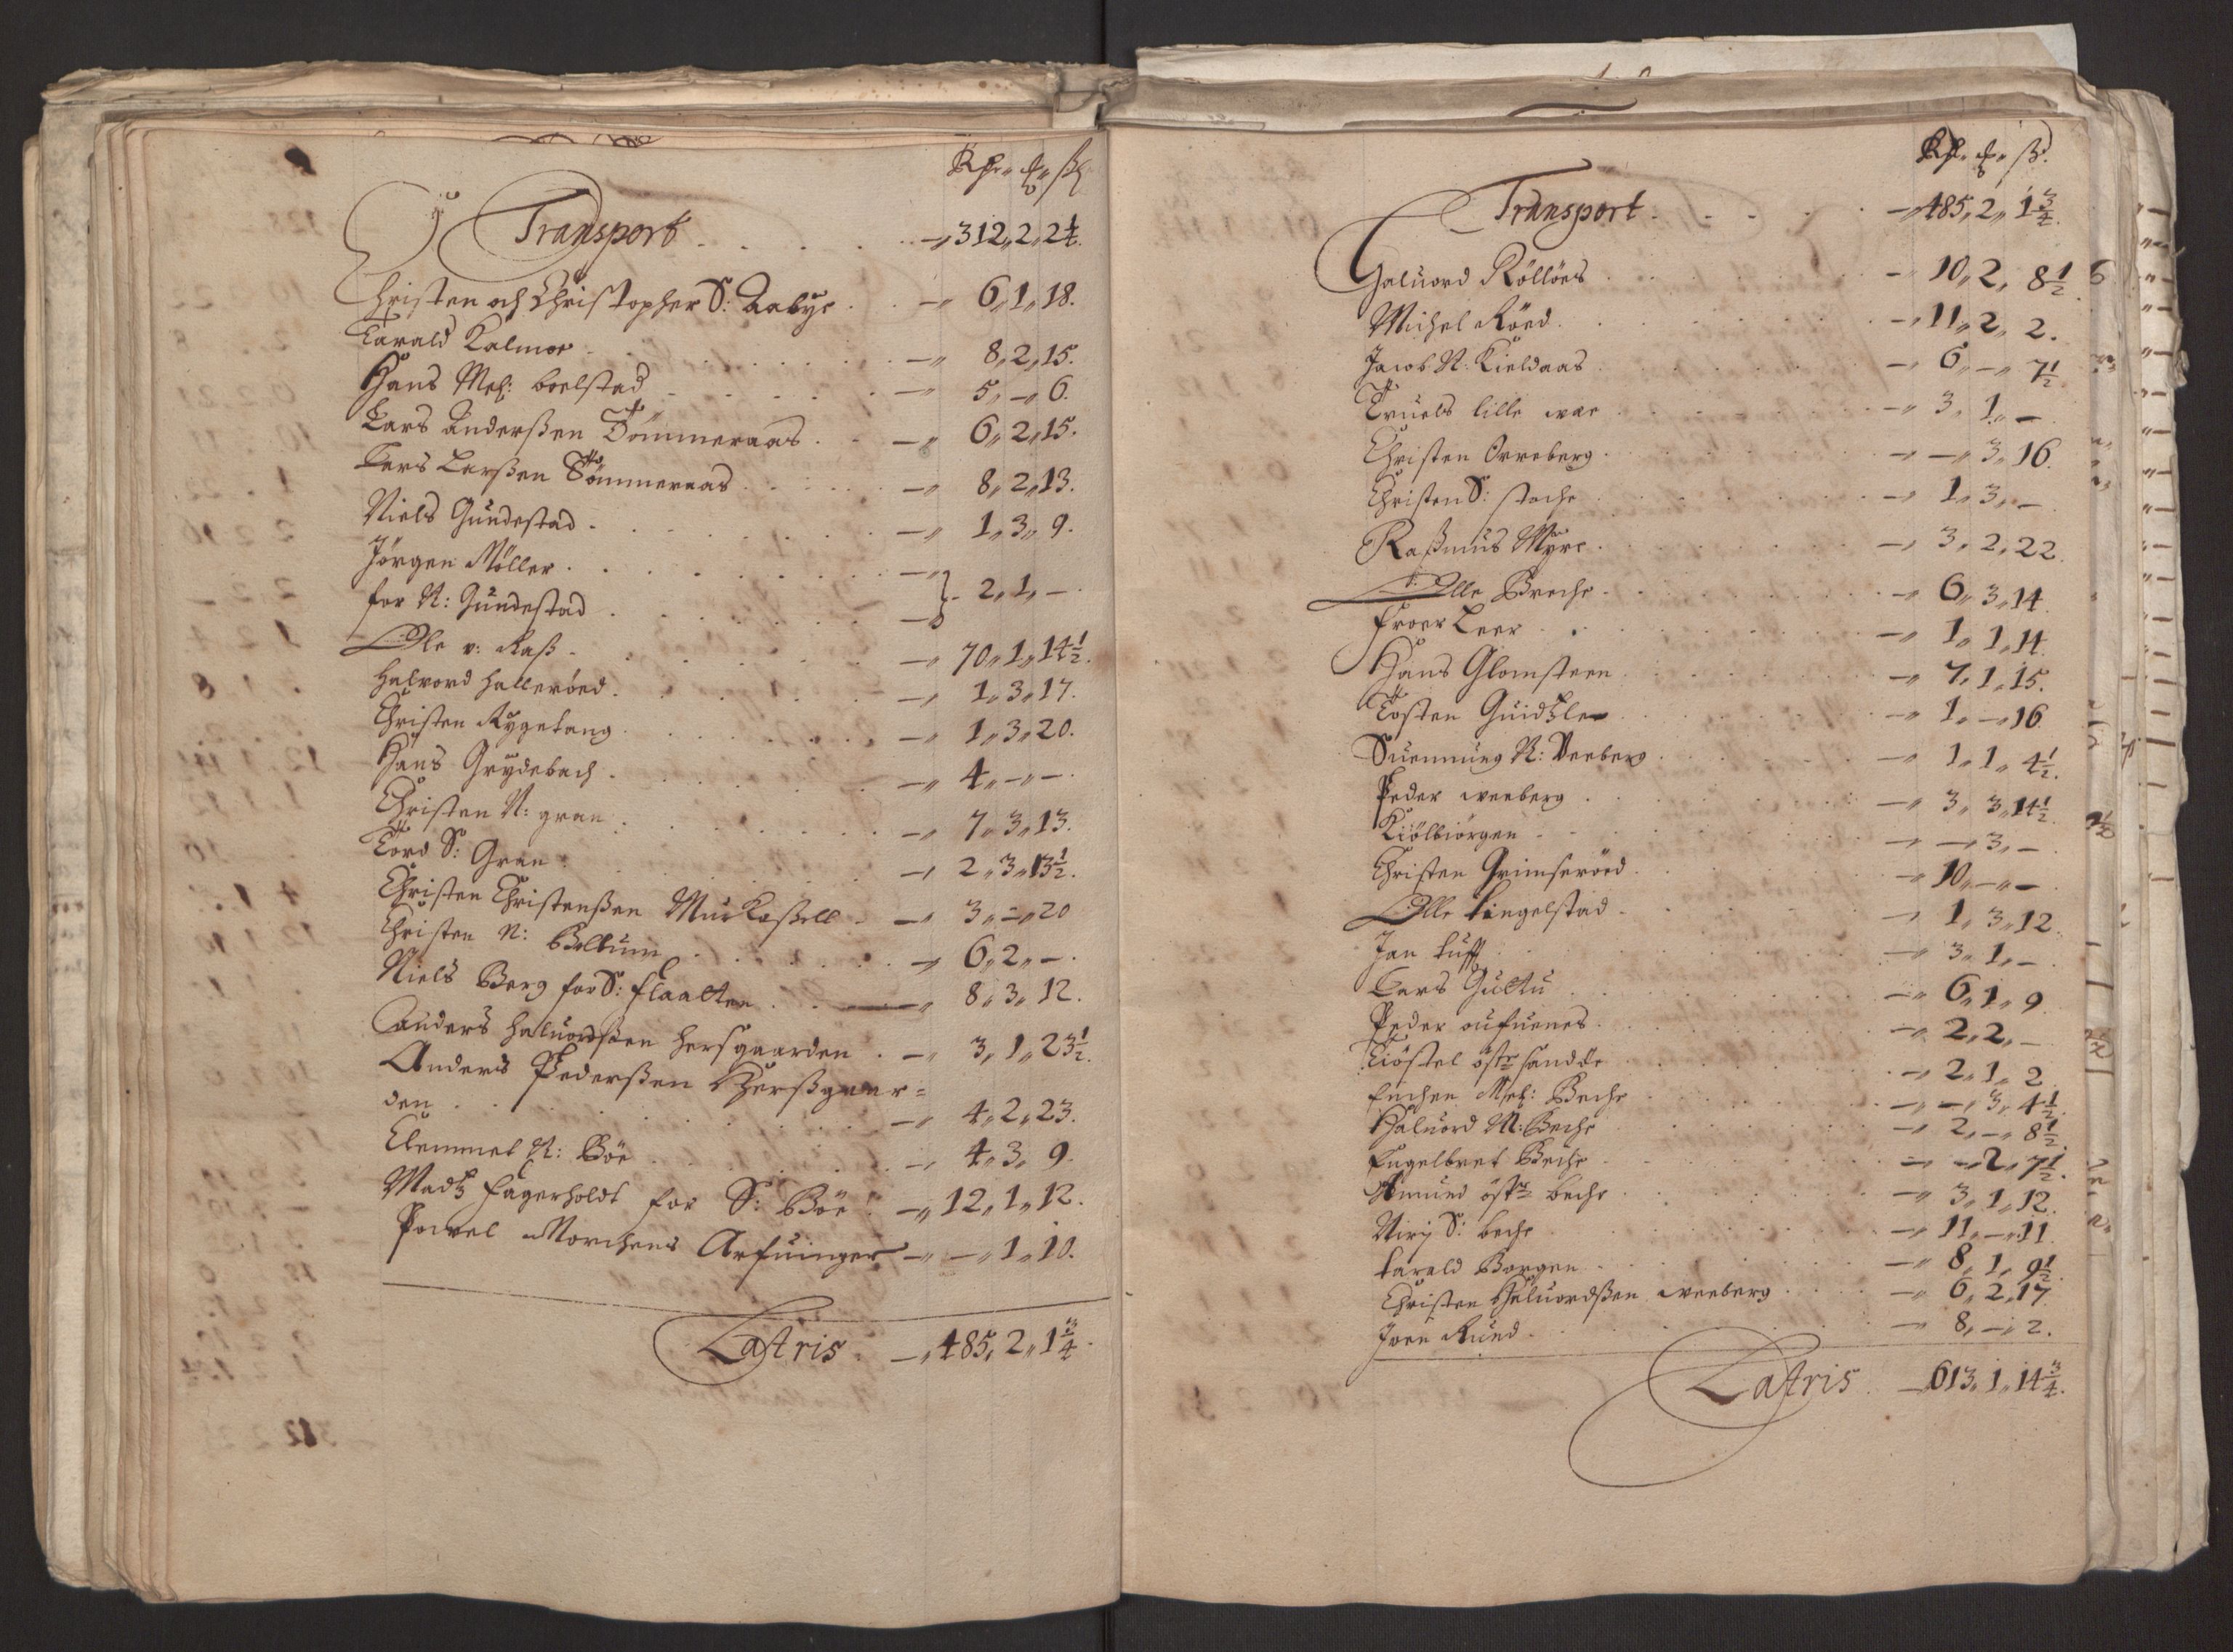 Rdr. ß
Transport . . . . . 312,, 2,, 2 1/4.
Christen och Christopher S: Aabÿe . . 6,, 1,, 18.
Tarald Kalmoe . . . 8,, 2,, 15.
Hans Mel: boelstad . . . 5,, — 6.
Lars Anderßen Tömmeraas . . 6,, 2,, 15.
Lars Larßen Tömmeraas . . . 8,, 2,, 13.
Niels Gundestad . . . 1,, 3,, 9.
Jörgen Möller . . .
for N: Gundestad . . . } 2,, 1,, — .
Ole v: Raß . . . 70,, 1,, 14 1/2.
Halvord Halleröed . . . 1,, 3,, 17.
Christen Rygetang . . . 1,, 3,, 20.
Hans Grydebach . . . 4,, — ,, — .
Christen N: gran . . . 7,, 3,, 13.
Tord S: Gran . . . 2,, 3,, 13 1/2.
Christen Christenßen Murkaßell . . 3,, — ,, 20
Christen N: Boltum . . . 6,, 2,, — .
Niels Berg for S: flaatten . . . 8,, 3,, 12.
Anders Haluordßen Hersgaarden . 3,, 1,, 23 1/2.
Anders Pederßen Herßgaar=
den . . . 4,, 2,, 23.
Clemmet N: Böe . . . 4,, 3,, 9.
Madtz fagerholdt for S: Böe . 12,, 1,, 12.
Powel Morchens Arfuinger — ,, 1,, 10.
Latris . 485,, 2,, 1 3/4.
Rdr. ß.
Transport . . . . 485,, 2,, 1 3/4.
Haluord Röllöes . . . 10,, 2,, 8 1/2.
Michel Röed . . . 11,, 2,, 2.
Jacob N: Kieldaas . . . 6,, — ,, 7 1/2.
Truels lille war . . . 3,, 1,, —
Christen Orreberg . . . — ,, 3,, 16.
Christen S: stoche . . . 1,, 3,, —
Raßmus Myre . . . 3,, 2,, 22.
Olle Breche . . . 6,, 3,, 14.
froer Leer . . . 1,, 1,, 14.
Hans Glomsteen . . . 7,, 1,, 15.
Tosten Guidtzler . . . 1,, — ,, 16.
Suennung N: Veeberg . . . 1,, 1,, 4 1/2.
Peder weeberg . . . 3,, 3,, 14 1/2.
Kiölbiörgen . . . — ,, 3,, — .
Christen Grimseröed . . . 10,, — ,, — .
Olle Lingelstad . . . 1,, 3,, 12.
Jan tufft . . . 3,, 1,, — .
Lars Gultu . . . 6,, 1,, 9.
Peder oufuenes . . . 2,, 2,, —
Kiöstel östr sandde . . . 2,, 1,, 2
Mel: Beche . . . — ,, 3,, 4 1/2.
Haluord N: Beche . . . 2,, — ,, 8 1/2.
Engelbret Beche . . . — ,, 2,, 7 1/2.
Amund östr beche . . . 3,, 1,, 12.
S: beche . . . 11,, — ,, 11.
tarald Borgen . . . 8,, 1,, 9 1/2.
Christen Haluordßen weeberg . . . 6,, 2,, 17.
Joen Rund . . . 8,, — ,, 2.
Latris . 613,, 1,, 14 3/4.